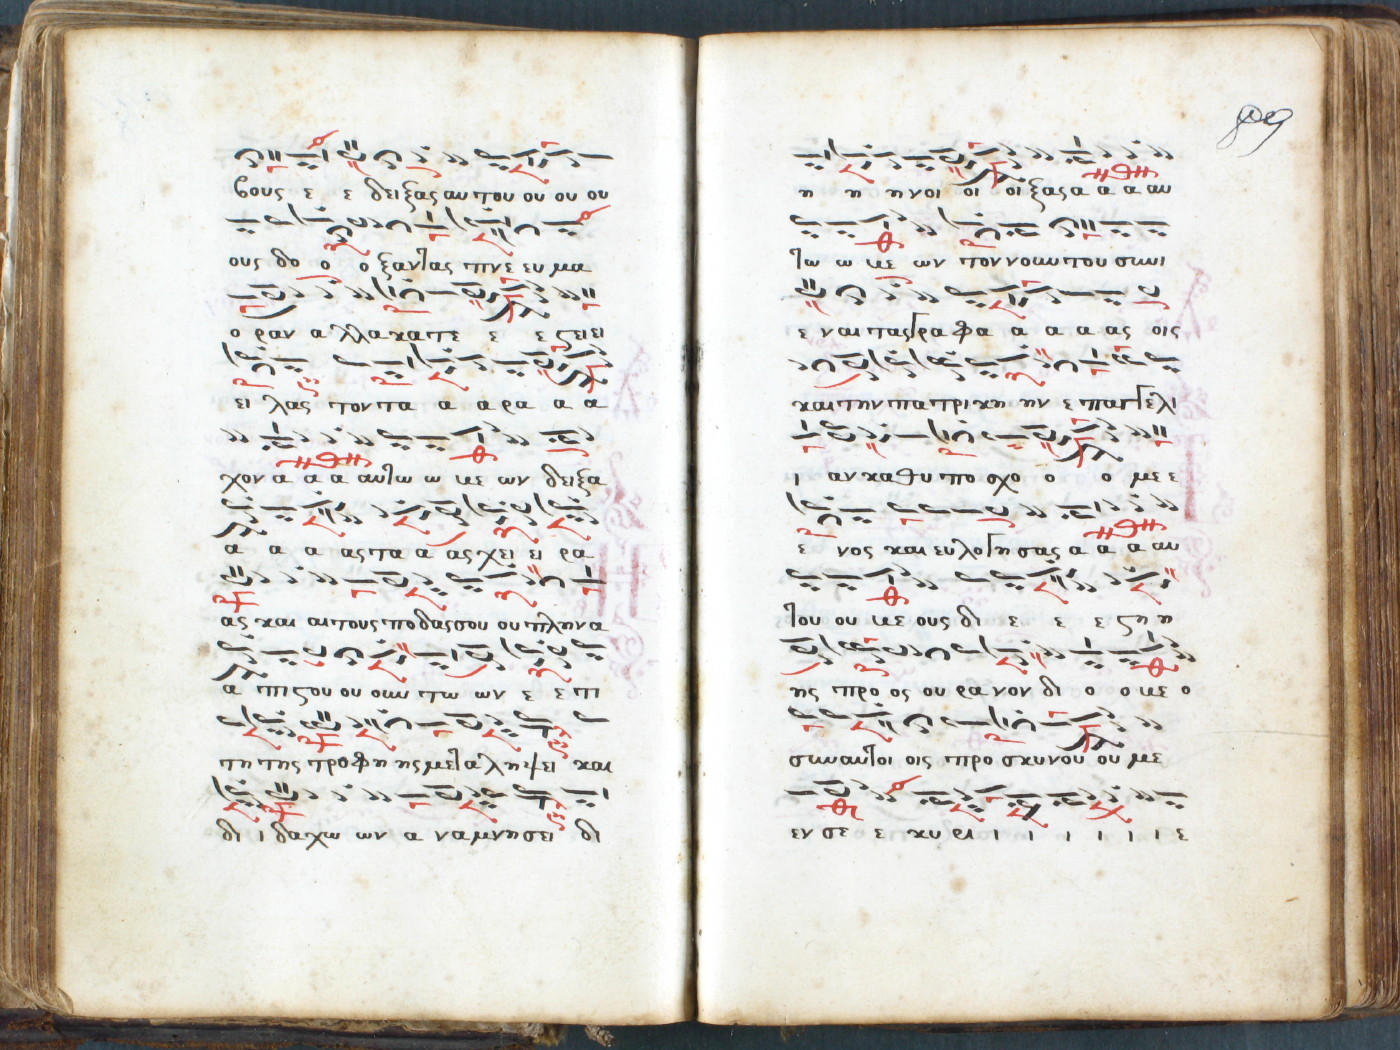 βους ε ε δειξας αυ του ου ου ου
ους δο ο ο ξαντας πνε ευ μα
ο ραν α λλα κα πε ε ε ζει ει
ει λας τον πα α α ρα α α
χον α α α αυτω ω με ων δειξα
α α α ας τα α ας χει ει ρα
ας και αι τους ποδας σου ου πλην α
α πι ζου ου οιω πω ων ε ε πι
τη της προφη ης με τα λη ψει και
δι ι δα χω ων α να μνη σει δι
η η ην οι οι οι ξας α α α αυ
τω ω με ων τον νουν του συνι
ε ναι τας γρα φα α α α ας οις
και την πα τρι κη ην ε παγγελι
ι αν κα θυ πο σχο ο ο με ε
ε νος και ευ λο γη σας α α α αυ
του ου με ους δι ε ε ε ζη η
ης προ ος ου ρα νον δι ο ο με ο
συν αυτοι οις προ σκυνου ου με
εν σε ε κυ ρι ι ι ι ι ι ι ε